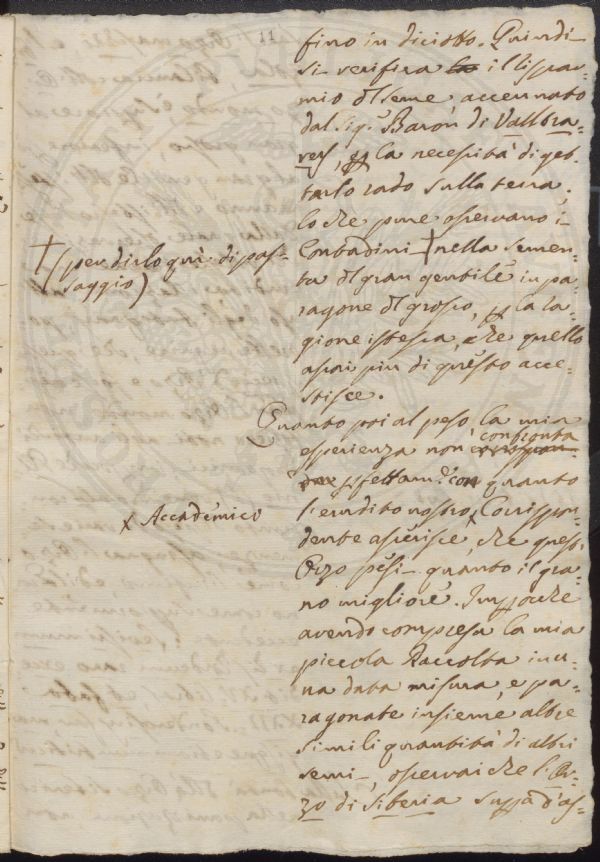 11
fino in diciotto. Quindi
si verifica il rispar=
mio del seme accennato
dal Sig.r Baron di Valltra=
vers, e la necessità di get=
tarlo rado sulla terra,
lo che pure osservano i
Contadini † nella semen=
† (per dirlo quì di pas=
saggio)
ta del gran gentile in pa=
ragone del grosso, per la ra=
gione istessa, che quello
assai più di questo acce=
stisce.
Quanto poi al peso, la mia
esperienza non confronta
perfettam.e con quanto
l'erudito nostro x Corrispon=
x Accademico
dente asserisce, che quest'
Orzo pesi quanto il gra=
no migliore. Imperocche
avendo compresa la mia
piccola Raccolta in u=
na data misura, e pa=
ragonate insieme altre
simili quantità di altri
semi, osservai che l'Or=
zo di Siberia supera d'as=